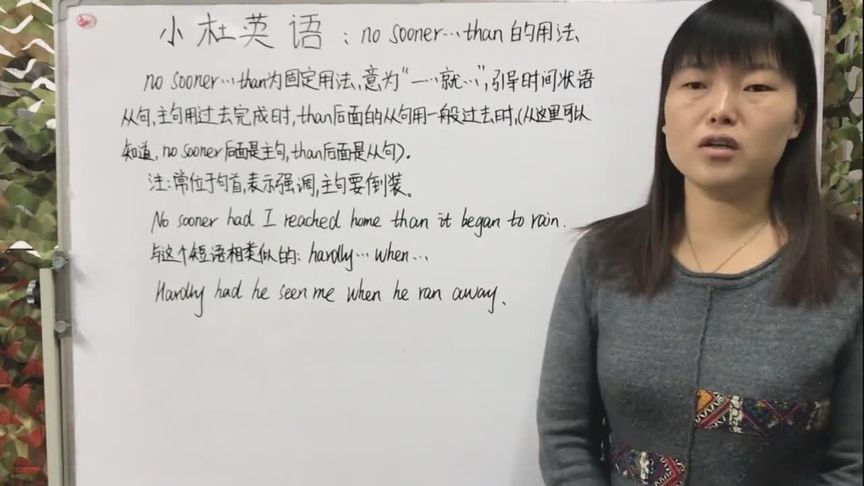 小杜英语：no sooner…than的用法
no sooner…than为固定用法，意为“一…就…”，引导时间状语
从句，主句用过去完成时，than后面的从句用一般过去时，(从这里可以
知道，no sooner后面是主句，than后面是从句)。
注：常位于句首，表示强调，主句要倒装。
No sooner had I reached home than it began to rain.
与这个短语相类似的：hardly…when…
Hardly had he seen me when he ran away.